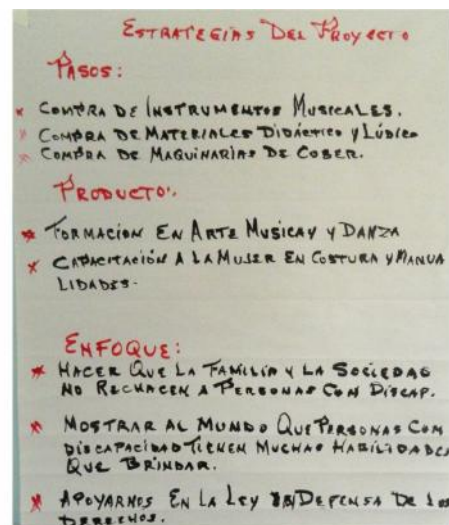 ESTRATEGIAS DEL PROYECTO
PASOS:
* COMPRA DE INSTRUMENTOS MUSICALES.
* COMPRA DE MATERIALES DIDÁCTICO Y LÚDICO
* COMPRA DE MAQUINARIAS DE COSER.
PRODUCTO:
* FORMACIÓN EN ARTE MUSICA Y DANZA
* CAPACITACIÓN A LA MUJER EN COSTURA Y MANUA
LIDADES.
ENFOQUE:
* HACER QUE LA FAMILIA Y LA SOCIEDAD
NO RECHACEN A PERSONAS CON DISCAP.
* MOSTRAR AL MUNDO QUE PERSONAS CON
DISCAPACIDAD TIENEN MUCHAS HABILIDADES
QUE BRINDAR.
* APOYARNOS EN LA LEY DEFENSA DE LOS
DERECHOS.